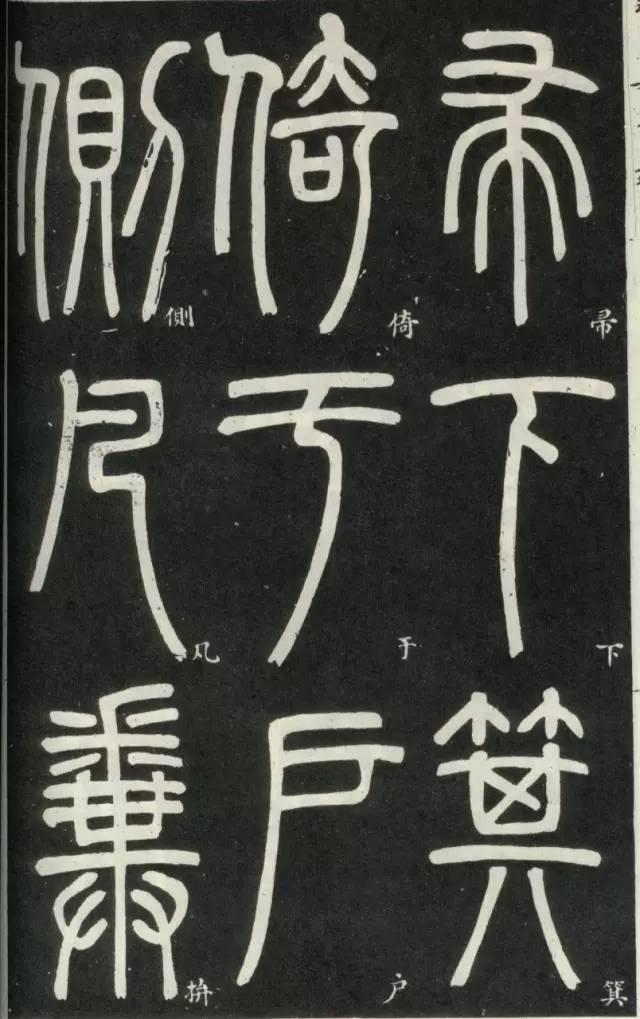 帚下箕
倚于户
側凡拚